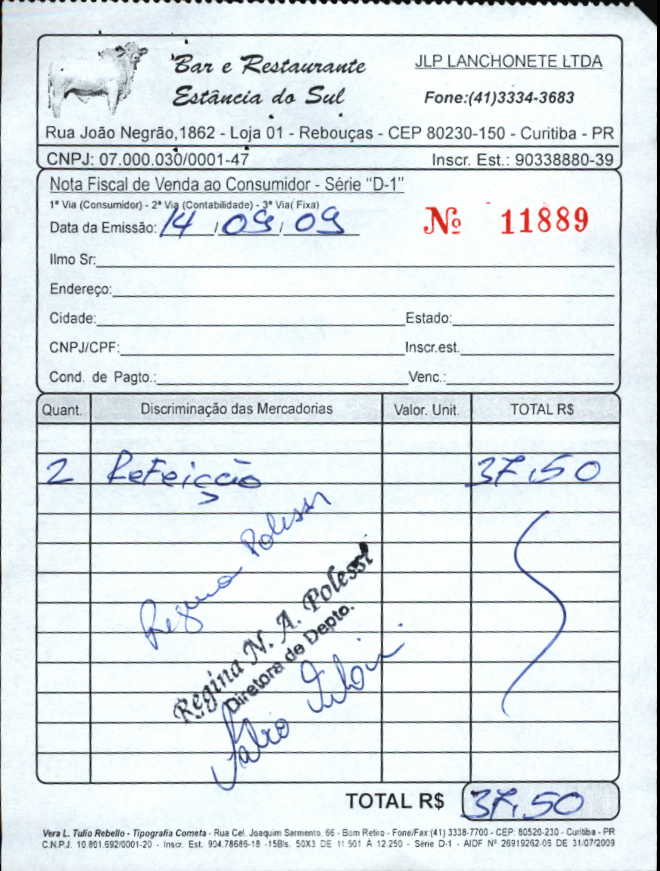 Bar e Restaurante
Estância do Sul
JLP LANCHONETE LTDA
Fone:(41)3334-3683
Rua João Negrão,1862 - Loja 01 - Rebouças - CEP 80230-150 - Curitiba - PR
CNPJ: 07.000.030/0001-47 Inscr. Est.: 90338880-39
Nota Fiscal de Venda ao Consumidor - Série "D-1"
1ª Via (Consumidor) - 2ª Via (Contabilidade) - 3ª Via( Fixa)
Data da Emissão: 14 / 09 / 09 Nº 11889
Ilmo Sr:
Endereço:
Cidade: Estado:
CNPJ/CPF: Inscr.est.
Cond. de Pagto.: Venc.:
Quant. Discriminação das Mercadorias Valor. Unit. TOTAL R$
2 Refeição 37,50
Regina Polessi
Regina N. A. Polessi
Diretora de Depto.
Fabio
TOTAL R$ 37,50
Vera L. Tulio Rebello - Tipografia Cometa - Rua Cel. Joaquim Sarmento, 66 - Bom Retiro - Fone/Fax:(41) 3338-7700 - CEP: 80520-230 - Curitiba - PR
C.N.P.J. 10.801.692/0001-20 - Inscr. Est. 904.78686-18 -15Bls. 50X3 DE 11.501 A 12.250 - Série D-1 - AIDF Nº 26919262-06 DE 31/07/2009